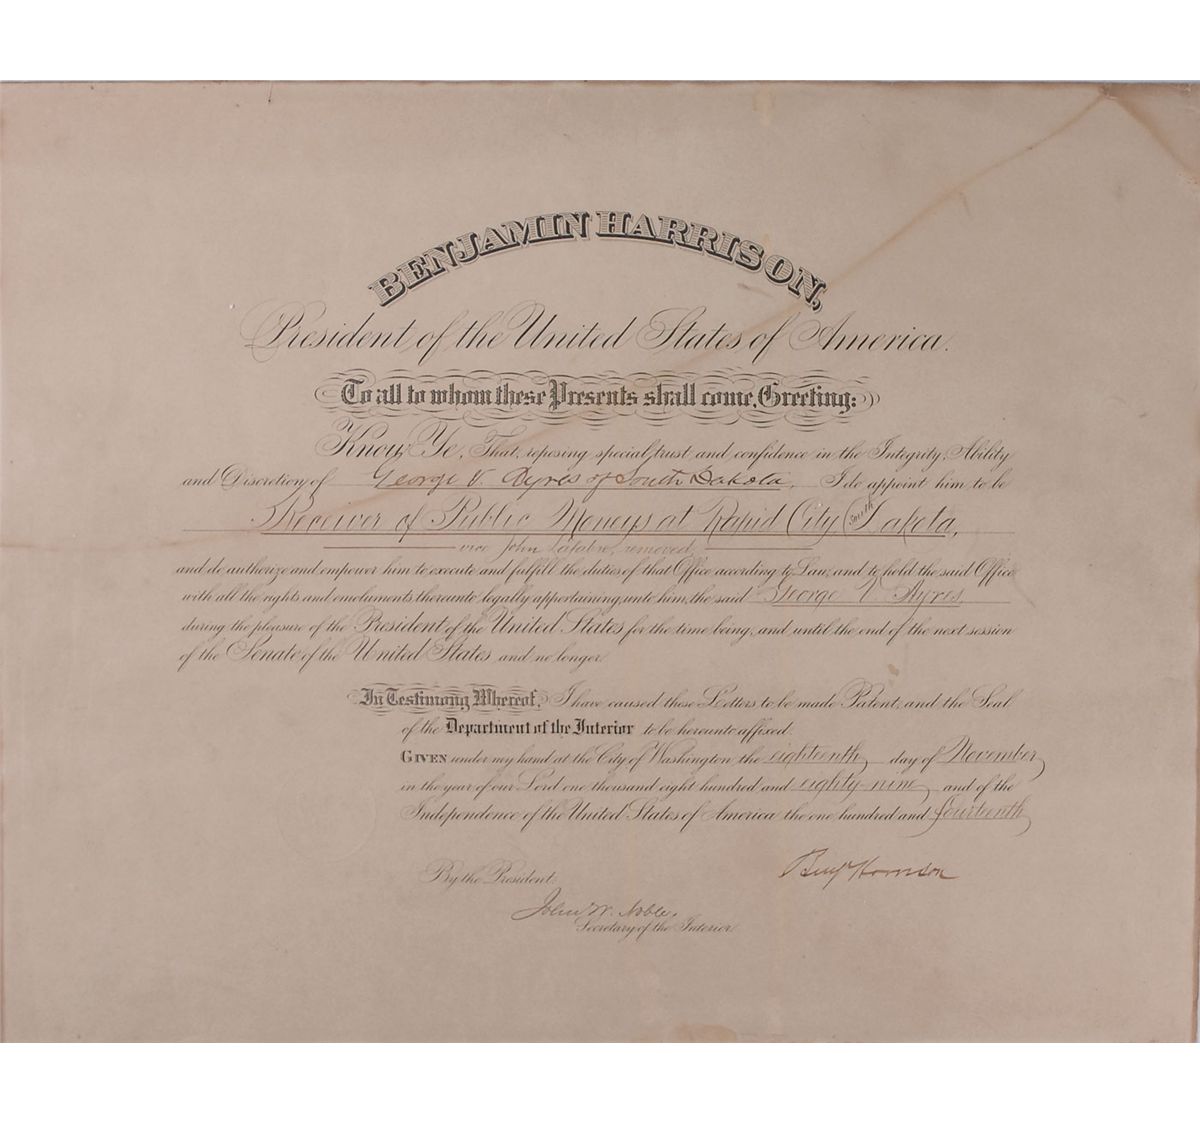 BENJAMIN HARRISON,
President of the United States of America.
To all to whom these Presents shall come, Greeting:
Know Ye, That, reposing special trust and confidence in the Integrity, Ability
and Discretion of George V. Ayres of South Dakota, I do appoint him to be
Receiver of Public Moneys at Rapid City, South Dakota,
vice John LaFabre, removed,
and do authorize and empower him to execute and fulfill the duties of that Office according to Law; and to hold the said Office
with all the rights and emoluments thereunto legally appertaining, unto him, the said George V. Ayres
during the pleasure of the President of the United States for the time being, and until the end of the next session
of the Senate of the United States and no longer.
In Testimony Whereof, I have caused these Letters to be made Patent, and the Seal
of the Department of the Interior to be hereunto affixed.
GIVEN under my hand at the City of Washington the eighteenth day of November,
in the year of our Lord one thousand eight hundred and eighty-nine, and of the
Independence of the United States of America the one hundred and fourteenth
Benj Harrison
By the President:
John W. Noble,
Secretary of the Interior.